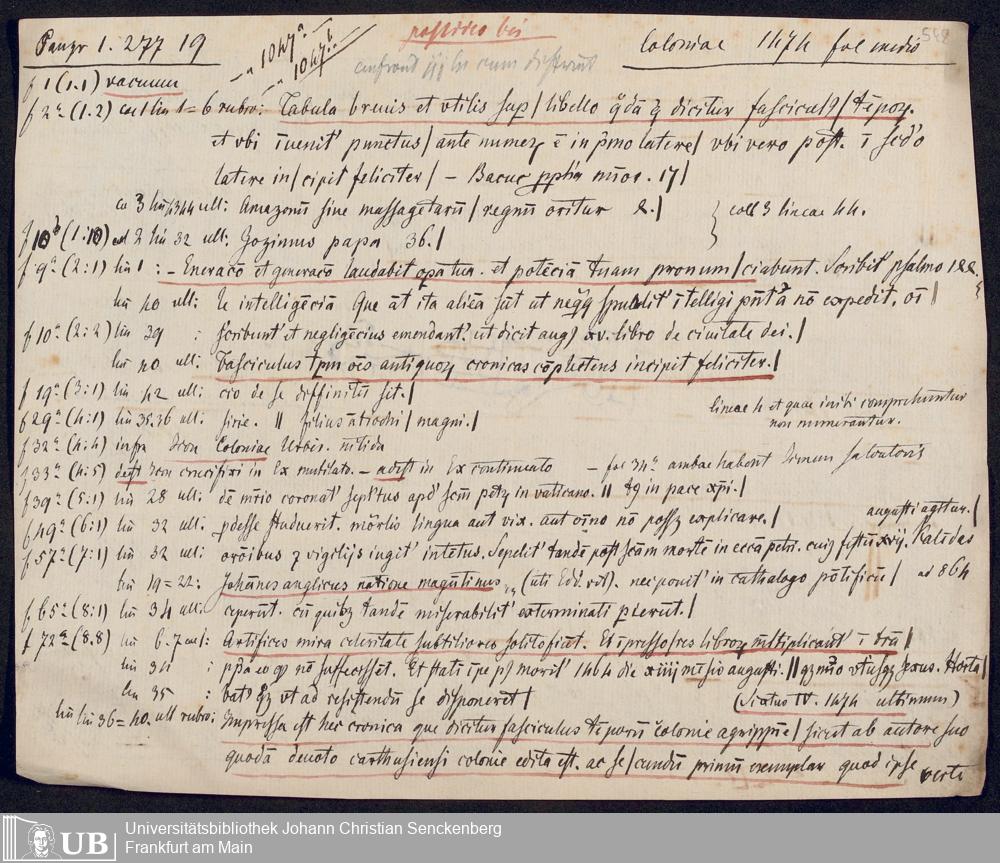 Panzr 1. 277 19
1047ᵃ
1047ᵇ
possideo bis
Coloniae 1474 fol medio
f 1 (1.1) vacuum
f 2ᵃ (1.2) rubro: Tabula breuis et vtilis sup / libello q̄dā dicitur fascicul9 / tēpoꝝ.
et vbi īuenit' punctus / ante numeꝝ ē in p̄mo latere / vbi vero post. ī sc̄do
latere in / cipit feliciter / – Bacuc pp̄h'a mīor. 17 /
co 3 ult: Amazonū sine massagetarū / regnū oritur 2. / coll 3 lineae 44.
f 10ᵇ (1:10) col 2 lin 32 ult: Zozimus papa 36. /
f 9ᵃ (2:1) lin 1: – Eneracō et generacō laudabit opa tua. et potēciā tuam pronum / ciabunt. Scribit' psalmo 144.
lin 40 ult: le intelligēciā Que āt ita alicā sūt ut īntelligi nō expedit, oī /
f 10ᵃ (2:2) lin 39 : scribunt' et negligēcius emendant. ut dicit aug9 xv. libro de ciuitate dei. /
lin 40 ult: Fasciculus tpm oēs antiquoꝝ cronicas cōplectens incipit feliciter. /
f 19ᵃ (3:1) lin 42 ult: cio de se diffinitū sit. /
lineae h et quae initi comprehuntur
non numerantur.
f 29ᵃ (4:1) lin 35.36 ult: sirie. || filius ātiochi / magni. /
f 32ᵃ (4:4) infra Icon Coloniae Urbis. nitida
f 33ᵃ (4:5) deest Icon crucifixi in Ex mutilato. – adest in Ex continuato – fol 34ᵃ ambae habent Iconem Salvatoris
f 39ᵃ (5:1) lin 28 ult: dē coronat' sepl'tus apd' scm̄ petꝝ in vaticano. || in pace xp̄i. /
f 49ᵃ (6:1) lin 32 ult: pdesse studuerit. mōrlis lingua aut vix. aut oīno nō possꝫ explicare. / augusti agitur. /
f. 57ᵃ (7:1) lin 32 ult: orōibus ꝫ vigilijs iugit' intētus. Sepelit' tandē post scām mortē in eccā petri. cui9 festū xvij. Kal'das
lin 19=22: Johānes anglicus natione magūtinus (uti Ed. vet). nec ponit' in cathalogo pōtificū / ad 864
f. 65ᵃ (8:1) lin 34 ult: ceperūt. cū quibꝫ tandē miserabilit' exterminati pierūt. /
f 72ᵃ (8.8) lin 6:7 : Artifices mira celeritate subtiliores solito fiūt. Et īpresso / res libroꝝ multiplicāt' ī trā /
lin 34 : pp̄a eo qꝫ nō suffecisset. Et stati īpe p9 morit' 1464 die xiiij mēsis augusti. || sexus. Horta /
lin 35 : bat' qꝫ vt ad resistendū se disponerēt / (Sixtus IV. 1474 ultimum)
lin 36=40. ult rubro: Impressa est hec cronica que dicitur fasciculus tēporū Colonie agrippīne / sicut ab autore suo
quodā deuoto carthusiensi colonie edita est. ac se / cundū primū exemplar quod ipse
verte
UB
Universitätsbibliothek Johann Christian Senckenberg
Frankfurt am Main